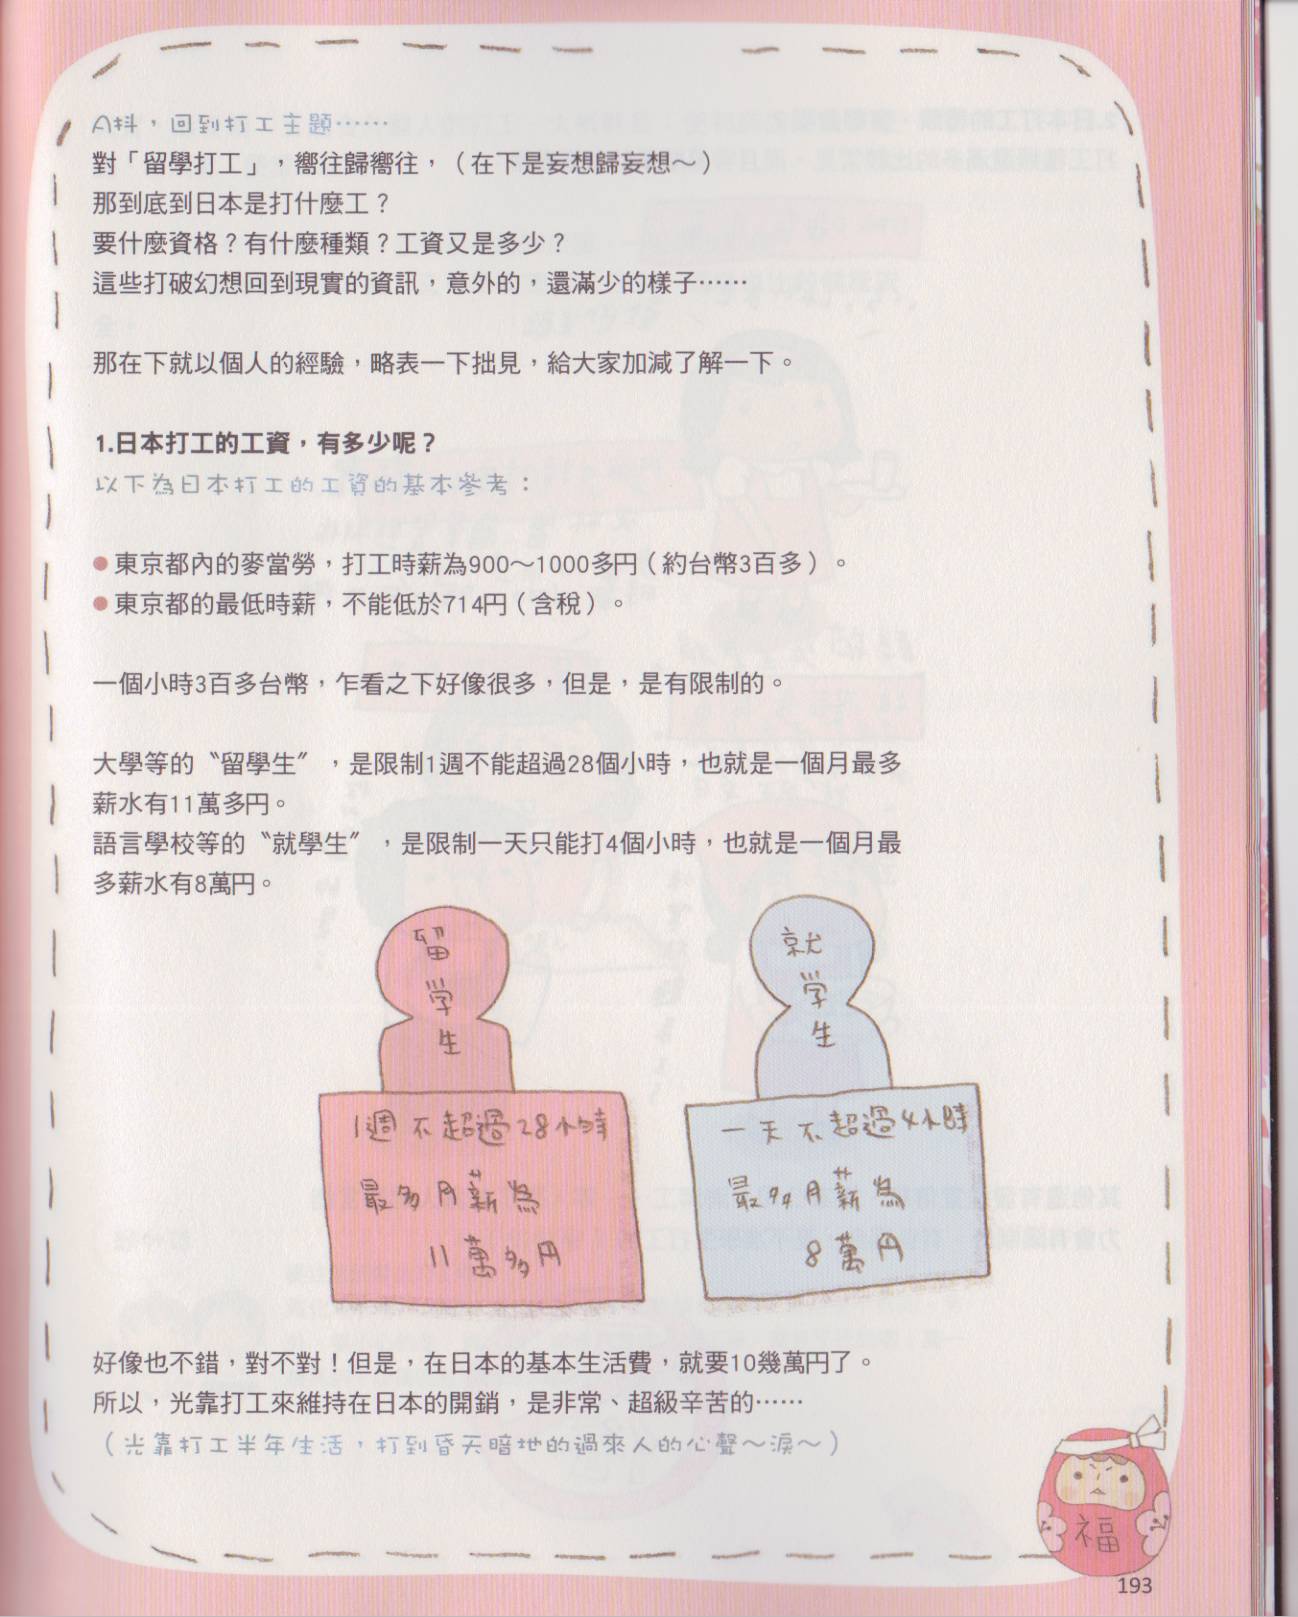 A抖，回到打工主題……
對「留學打工」，嚮往歸嚮往，（在下是妄想歸妄想～）
那到底到日本是打什麼工？
要什麼資格？有什麼種類？工資又是多少？
這些打破幻想回到現實的資訊，意外的，還滿少的樣子……
那在下就以個人的經驗，略表一下拙見，給大家加減了解一下。
1.日本打工的工資，有多少呢？
以下為日本打工的工資的基本參考：
●東京都內的麥當勞，打工時薪為900～1000多円（約台幣3百多）。
●東京都的最低時薪，不能低於714円（含稅）。
一個小時3百多台幣，乍看之下好像很多，但是，是有限制的。
大學等的〝留學生〞，是限制1週不能超過28個小時，也就是一個月最多
薪水有11萬多円。
語言學校等的〝就學生〞，是限制一天只能打4個小時，也就是一個月最
多薪水有8萬円。
留学生
1週不超過28小時
最多月薪為
11萬多円
就学生
一天不超過4小時
最多月薪為
8萬円
好像也不錯，對不對！但是，在日本的基本生活費，就要10幾萬円了。
所以，光靠打工來維持在日本的開銷，是非常、超級辛苦的……
（光靠打工半年生活，打到昏天暗地的過來人的心聲～淚～）
福
193